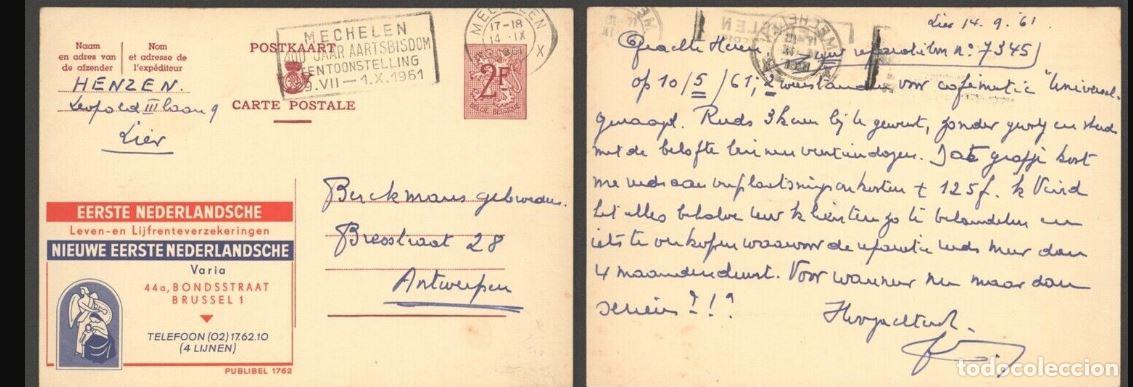 Naam
en adres van
de afzender
Nom
et adresse de
l'expéditeur
HENZEN.
Leopold III laan 9
Lier
POSTKAART
CARTE POSTALE
MECHELEN
400 JAAR AARTSBISDOM
TENTOONSTELLING
9.VII — 1.X.1961
MECHELEN
17-18
14-IX
2F
Berckmans gebroeders.
Bresstraat 28
Antwerpen
EERSTE NEDERLANDSCHE
Leven- en Lijfrenteverzekeringen
NIEUWE EERSTE NEDERLANDSCHE
Varia
44a, BONDSSTRAAT
BRUSSEL 1
TELEFOON (02) 17.62.10
(4 LIJNEN)
PUBLIBEL 1762
Lier 14.9.'61
Geachte Heren, reparatiebon n° 7345
op 10/5/61, voor cafematic "Universel
gevraagd. Reeds 3 keer bij U geweest, zonder
met de belofte binnen veertien dagen. Dat grapje kost
me reeds aan verplaatsingsonkosten ± 125f. Ik vind
het alles behalve uw klienten zo te behandelen en
iets te verkopen waarvoor de reparatie reeds meer dan
4 maanden duurt. Voor wanneer nu maar dan
serieus?!?
Hoogachtend.
todocoleccion
www.todocoleccion.net